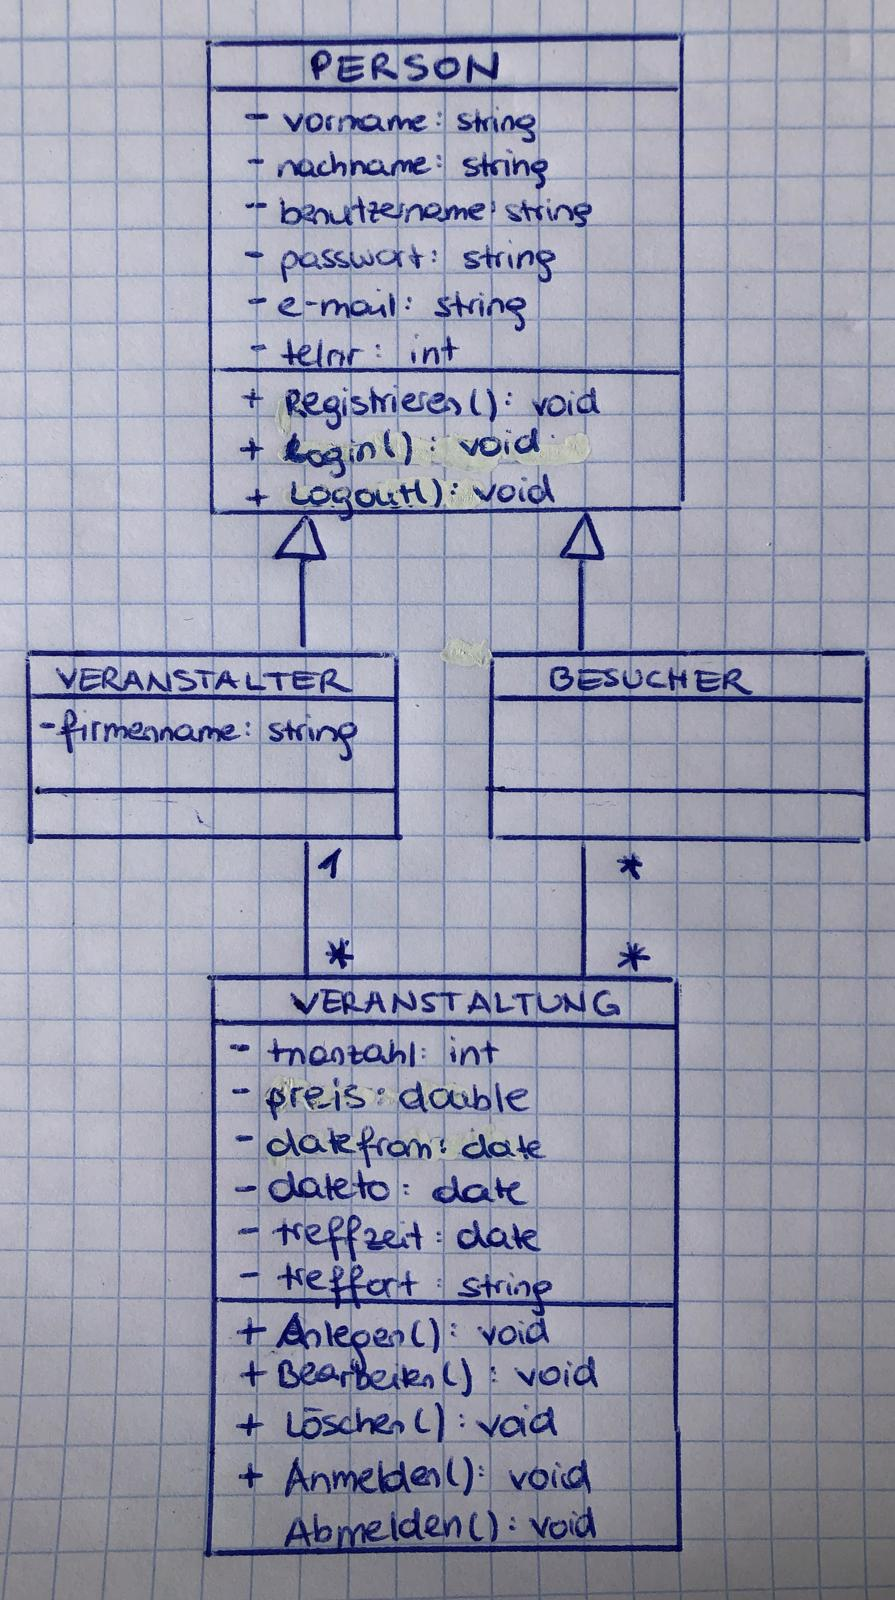 PERSON
- vorname: string
- nachname: string
- benutzername: string
- passwort: string
- e-mail: string
- telnr: int
+ Registrieren(): void
+ Login(): void
+ Logout(): void
VERANSTALTER
- firmenname: string
BESUCHER
1
*
*
*
VERANSTALTUNG
- tnanzahl: int
- preis: double
- datefrom: date
- dateto: date
- treffzeit: date
- treffort: string
+ Anlegen(): void
+ Bearbeiten(): void
+ Löschen(): void
+ Anmelden(): void
Abmelden(): void